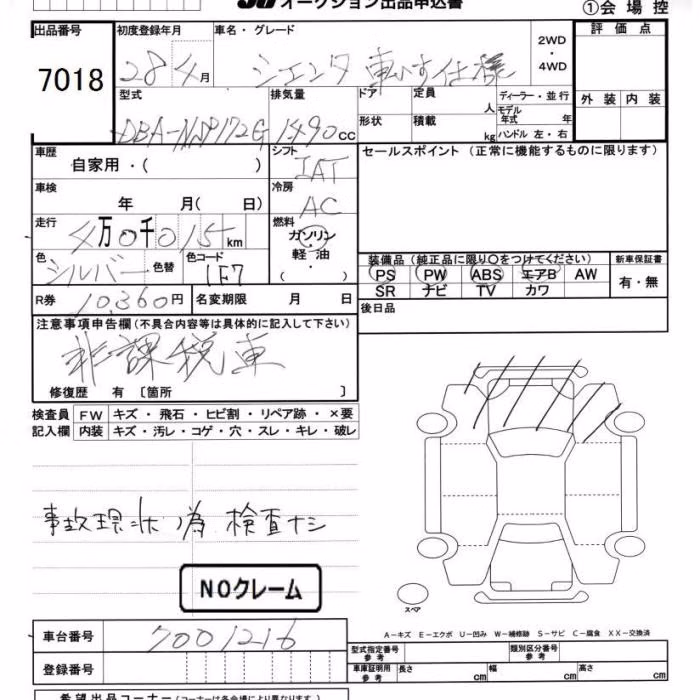 オークション出品申込書
①会場控
出品番号
7018
初度登録年月
28年4月
車名・グレード
シエンタ 車いす仕様
2WD
・
4WD
評価点
外装 内装
型式
DBA-NSP172G
排気量
1490 CC
ドア
形状
定員 人
積載 kg
ディーラー・並行
モデル年式 年
ハンドル 左・右
車歴
自家用・( )
シフト
IAT
セールスポイント (正常に機能するものに限ります)
車検
年 月( 日)
冷房
AC
走行
4万0千015km
燃料
ガソリン
・
軽油
( ・ )
色
シルバー
色替
色コード
1F7
装備品 (純正品に限り○をつけてください)
PS PW ABS エアB AW
SR ナビ TV カワ
新車保証書
有・無
R券
10,360円
名変期限 月 日
後日品
注意事項申告欄 (不具合内容等は具体的に記入して下さい)
非課税車
修復歴 有 〔箇所 〕
検査員記入欄
FW キズ・飛石・ヒビ割・リペア跡・×要
内装 キズ・汚レ・コゲ・穴・スレ・キレ・破レ
事故現状ノ為 検査ナシ
NOクレーム
スペア
A-キズ E-エクボ U-凹み W-補修跡 S-サビ C-腐食 XX-交換済
車台番号
7001216
登録番号
型式指定番号 参考
類別区分番号 参考
車庫証明用 参考
長さ cm
幅 cm
高さ cm
希望出品コーナー (コーナーは各会場により異なります。)